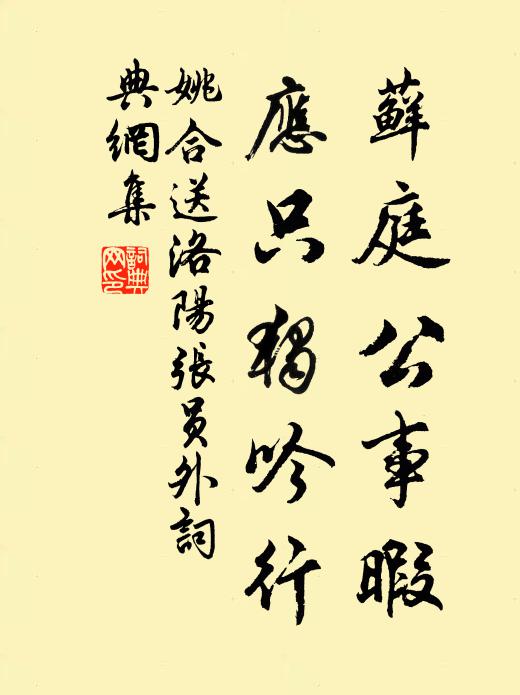 蘚庭公事暇
應只獨吟行
姚合送洛陽張員外詞
典網集
詞典網印